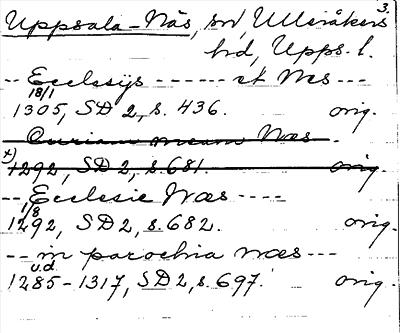 3.
Uppsala-Näs, sn, Ulleråkers
hd, Upps. l.
-- Ecclesijs ------ et Næs ---
18/1
1305, SD 2, s. 436. orig.
Curiam meam Næs.
+) 1292, SD 2, s. 681. orig.
-- Ecclesie Næs ----
1/8
1292, SD 2, s. 682. orig.
-- in parochia næs ---
u.d.
1285-1317, SD 2, s. 697. orig.